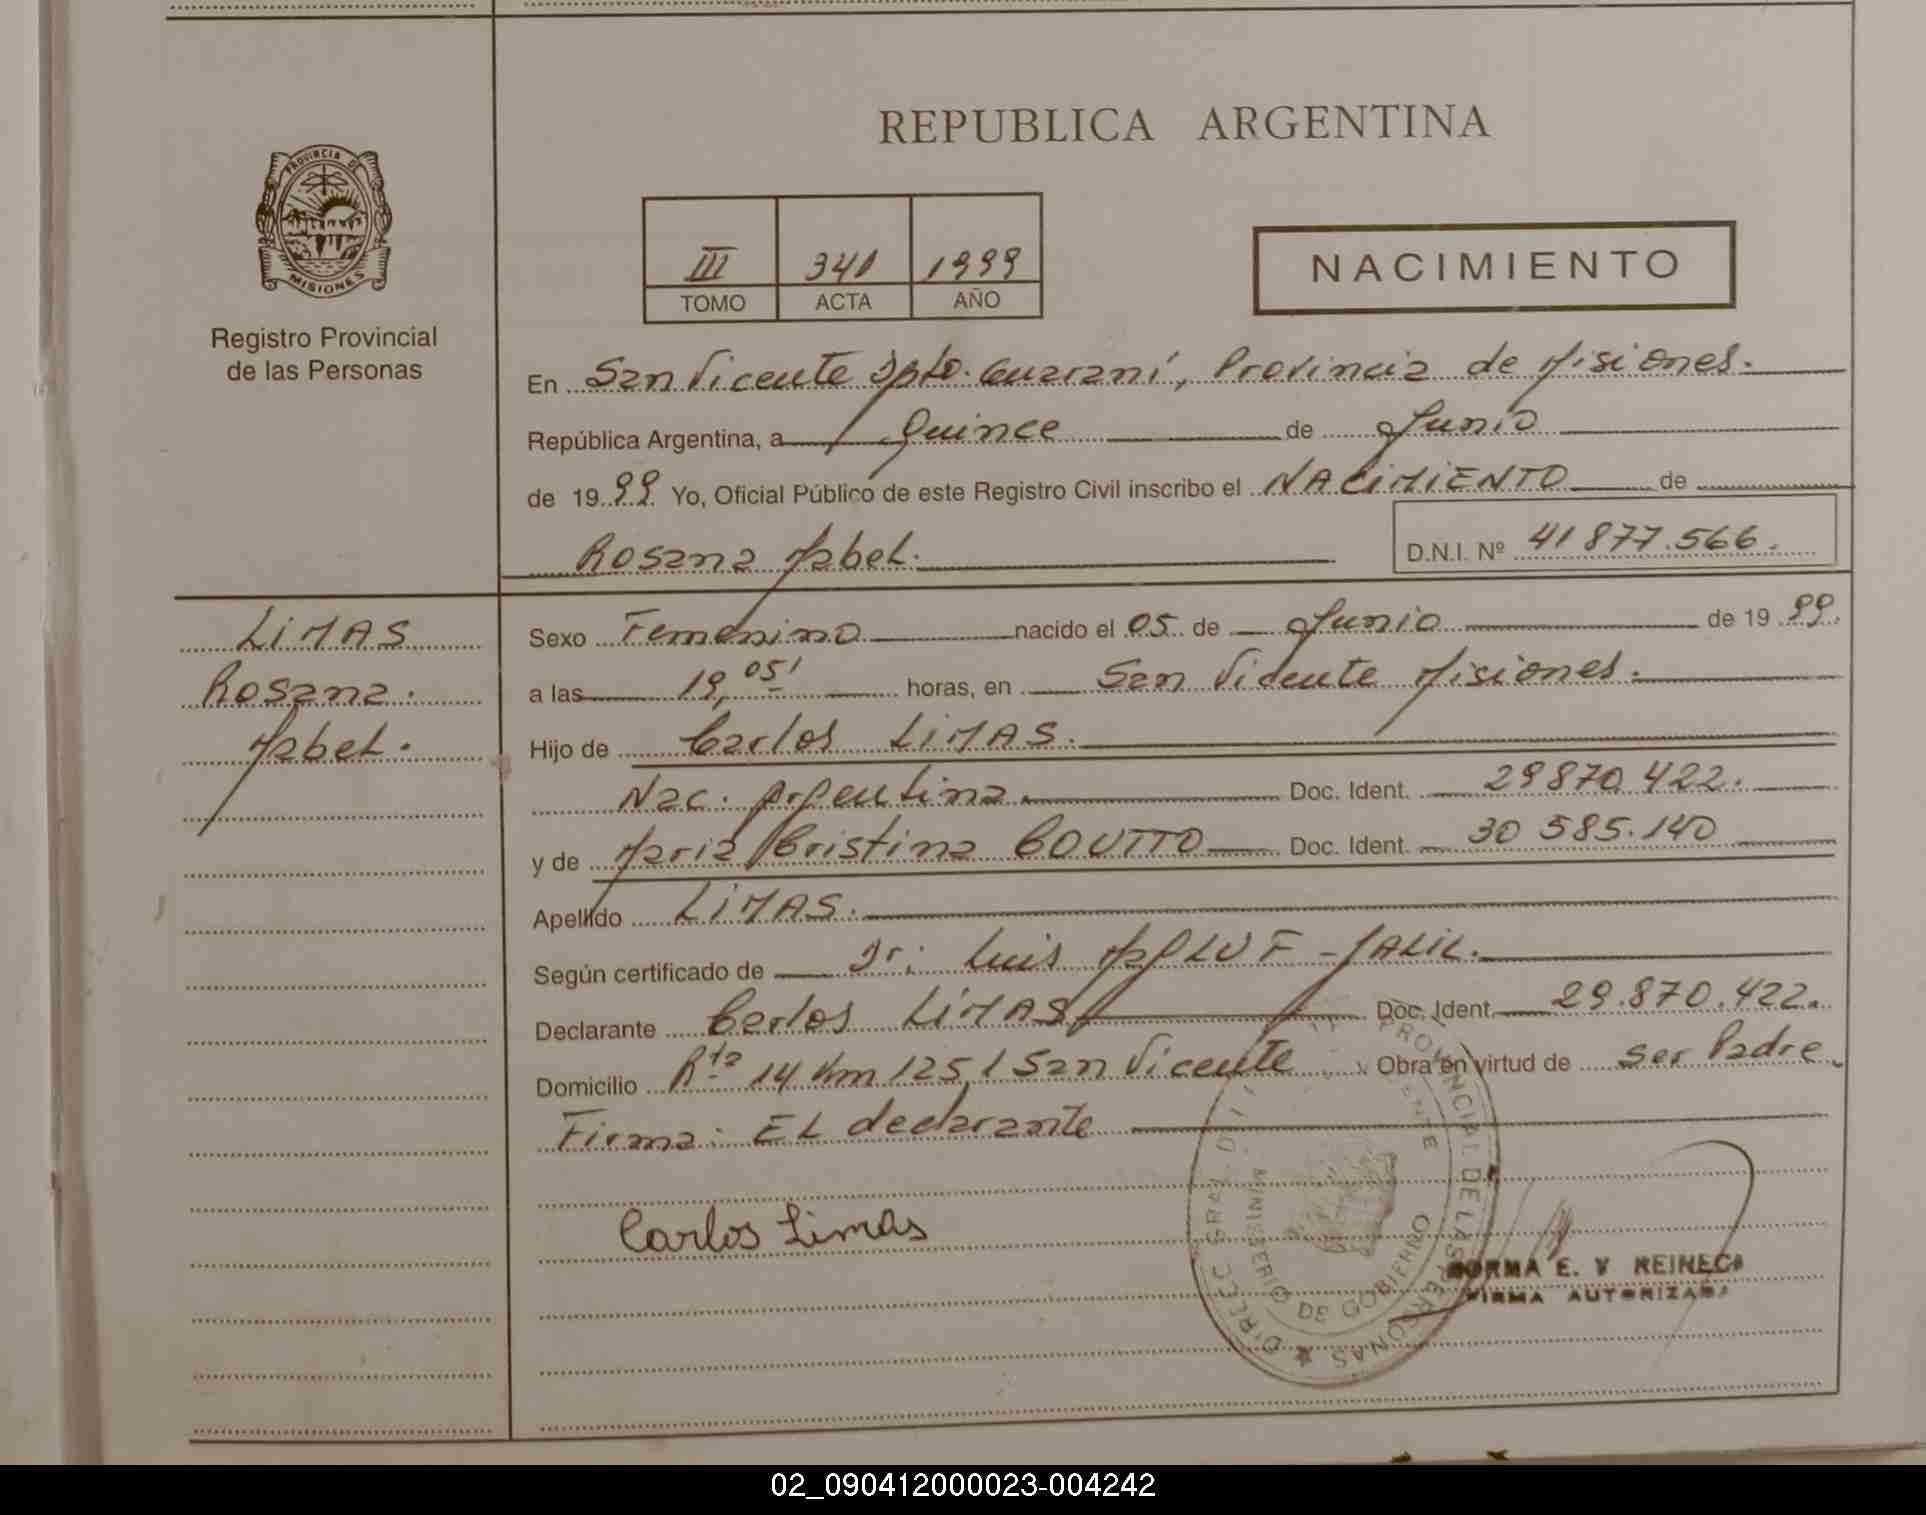 REPUBLICA ARGENTINA
PROVINCIA DE
MISIONES
Registro Provincial
de las Personas
III 341 1999
TOMO ACTA AÑO
NACIMIENTO
En San Vicente Dpto. Guaraní, Provincia de Misiones.
República Argentina, a Quince de Junio
de 1999 Yo, Oficial Público de este Registro Civil inscribo el NACIMIENTO de
Rosana Mabel.
D.N.I. Nº 41 877.566.
LIMAS
Rosana.
Mabel.
Sexo Femenino nacido el 05 de Junio de 1999.
a las 19,05' horas, en San Vicente Misiones.
Hijo de Carlos LIMAS.
Nac. Argentina. Doc. Ident. 29870.422.
y de Maria Cristina COUTTO Doc. Ident. 30 585.140
Apellido LIMAS.
Según certificado de Dr; Luis JALIL.
Declarante Carlos LIMAS Doc. Ident. 29.870.422.
Domicilio Rta 14 Km 1251 San Vicente Obra en virtud de ser Padre.
Firma: EL declarante
Carlos Limas
DIREC GRAL D PROVINCIAL DE LAS PERSONAS
MINISTERIO DE GOBIERNO
NORMA E. V REINECK
FIRMA AUTORIZADA
02_090412000023-004242